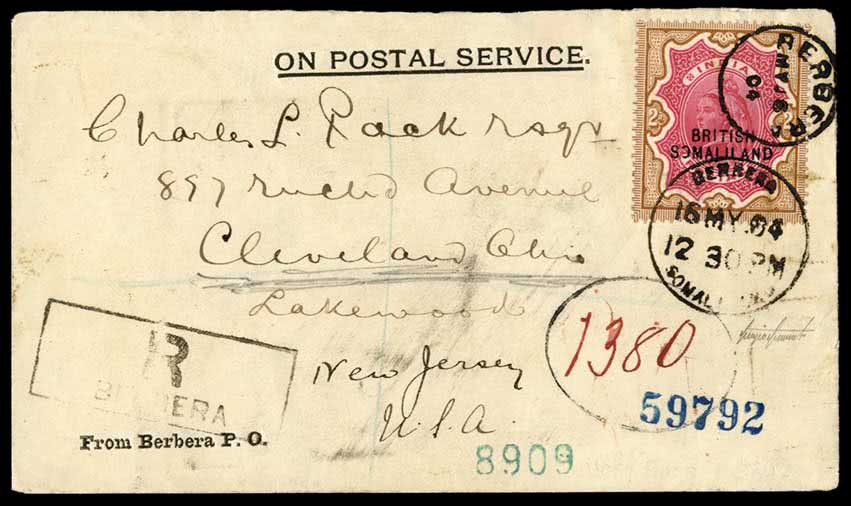 ON POSTAL SERVICE.
INDIA
2R
BRITISH
SOMALILAND
BERBERA
MY 16
04
BERBERA
16 MY.04
12 30 PM
SOMALILAND
Charles L. Pack Esqr
897 Avenue
Cleveland Ohio
Lakewood
New Jersey
U.S.A.
R
BERBERA
From Berbera P. O.
1380
59792
8909